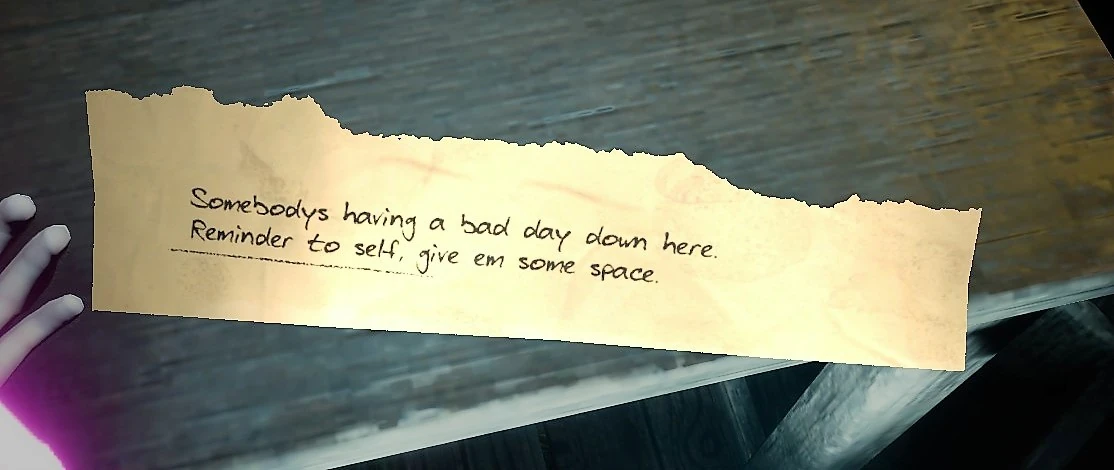 Somebodys having a bad day down here.
Reminder to self, give em some space.